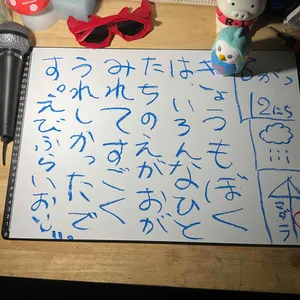 6がつ
12にち
きょうもぼく
は、いろんなひと
たちのえがおが
みれてすごく
うれしかったで
す。えびふらいおいし